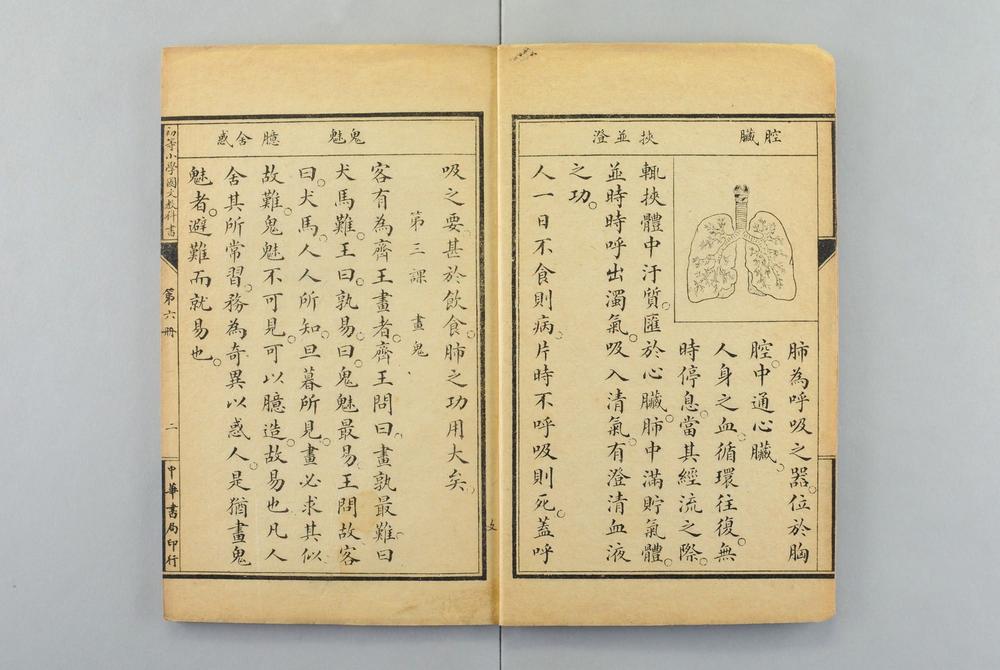 腔臟
挾並澄
肺為呼吸之器。位於胸
腔。中通心臟。
人身之血。循環往復。無
時停息。當其經流之際。
輒挾體中汙質。匯於心臟。肺中滿貯氣體。
並時時呼出濁氣。吸入清氣。有澄清血液
之功。
人一日不食則病。片時不呼吸則死。蓋呼
鬼魅
臆舍惑
吸之要。甚於飲食。肺之功用大矣。
第三課 畫鬼
客有為齊王畫者。齊王問曰。畫孰最難。曰
犬馬難。王曰。孰易。曰。鬼魅最易。王問故。客
曰。犬馬。人人所知。旦暮所見。畫必求其似。
故難。鬼魅不可見。可以臆造。故易也。凡人
舍其所常習。務為奇異以惑人。是猶畫鬼
魅者。避難而就易也。
初等小學國文教科書
第六冊
二
中華書局印行